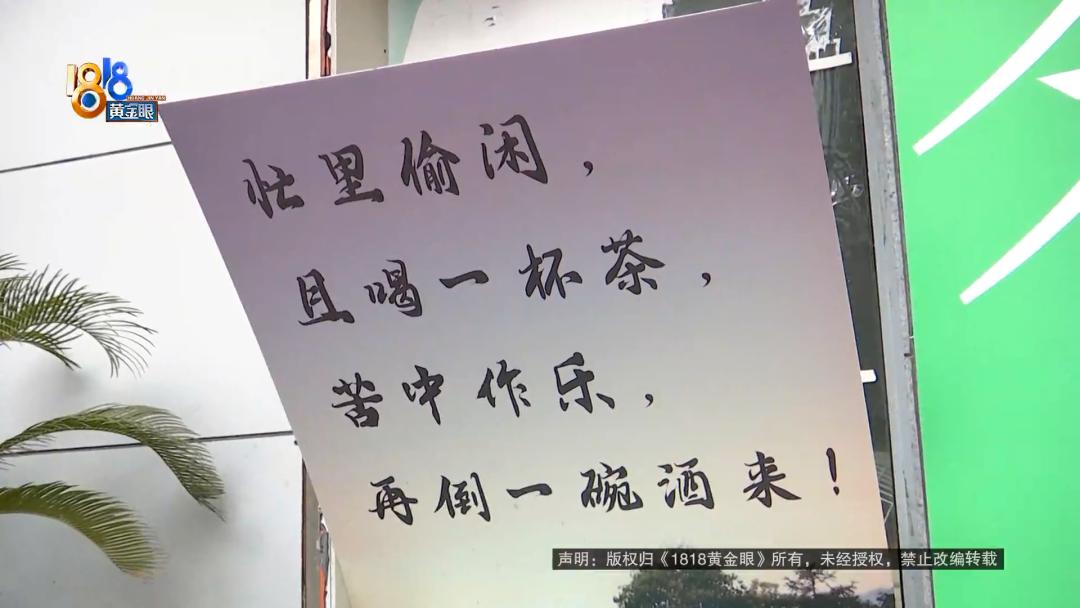 1818
HUANG JIN YAN
黄金眼
忙里偷闲，
且喝一杯茶，
苦中作乐，
再倒一碗酒来！
声明：版权归《1818黄金眼》所有，未经授权，禁止改编转载